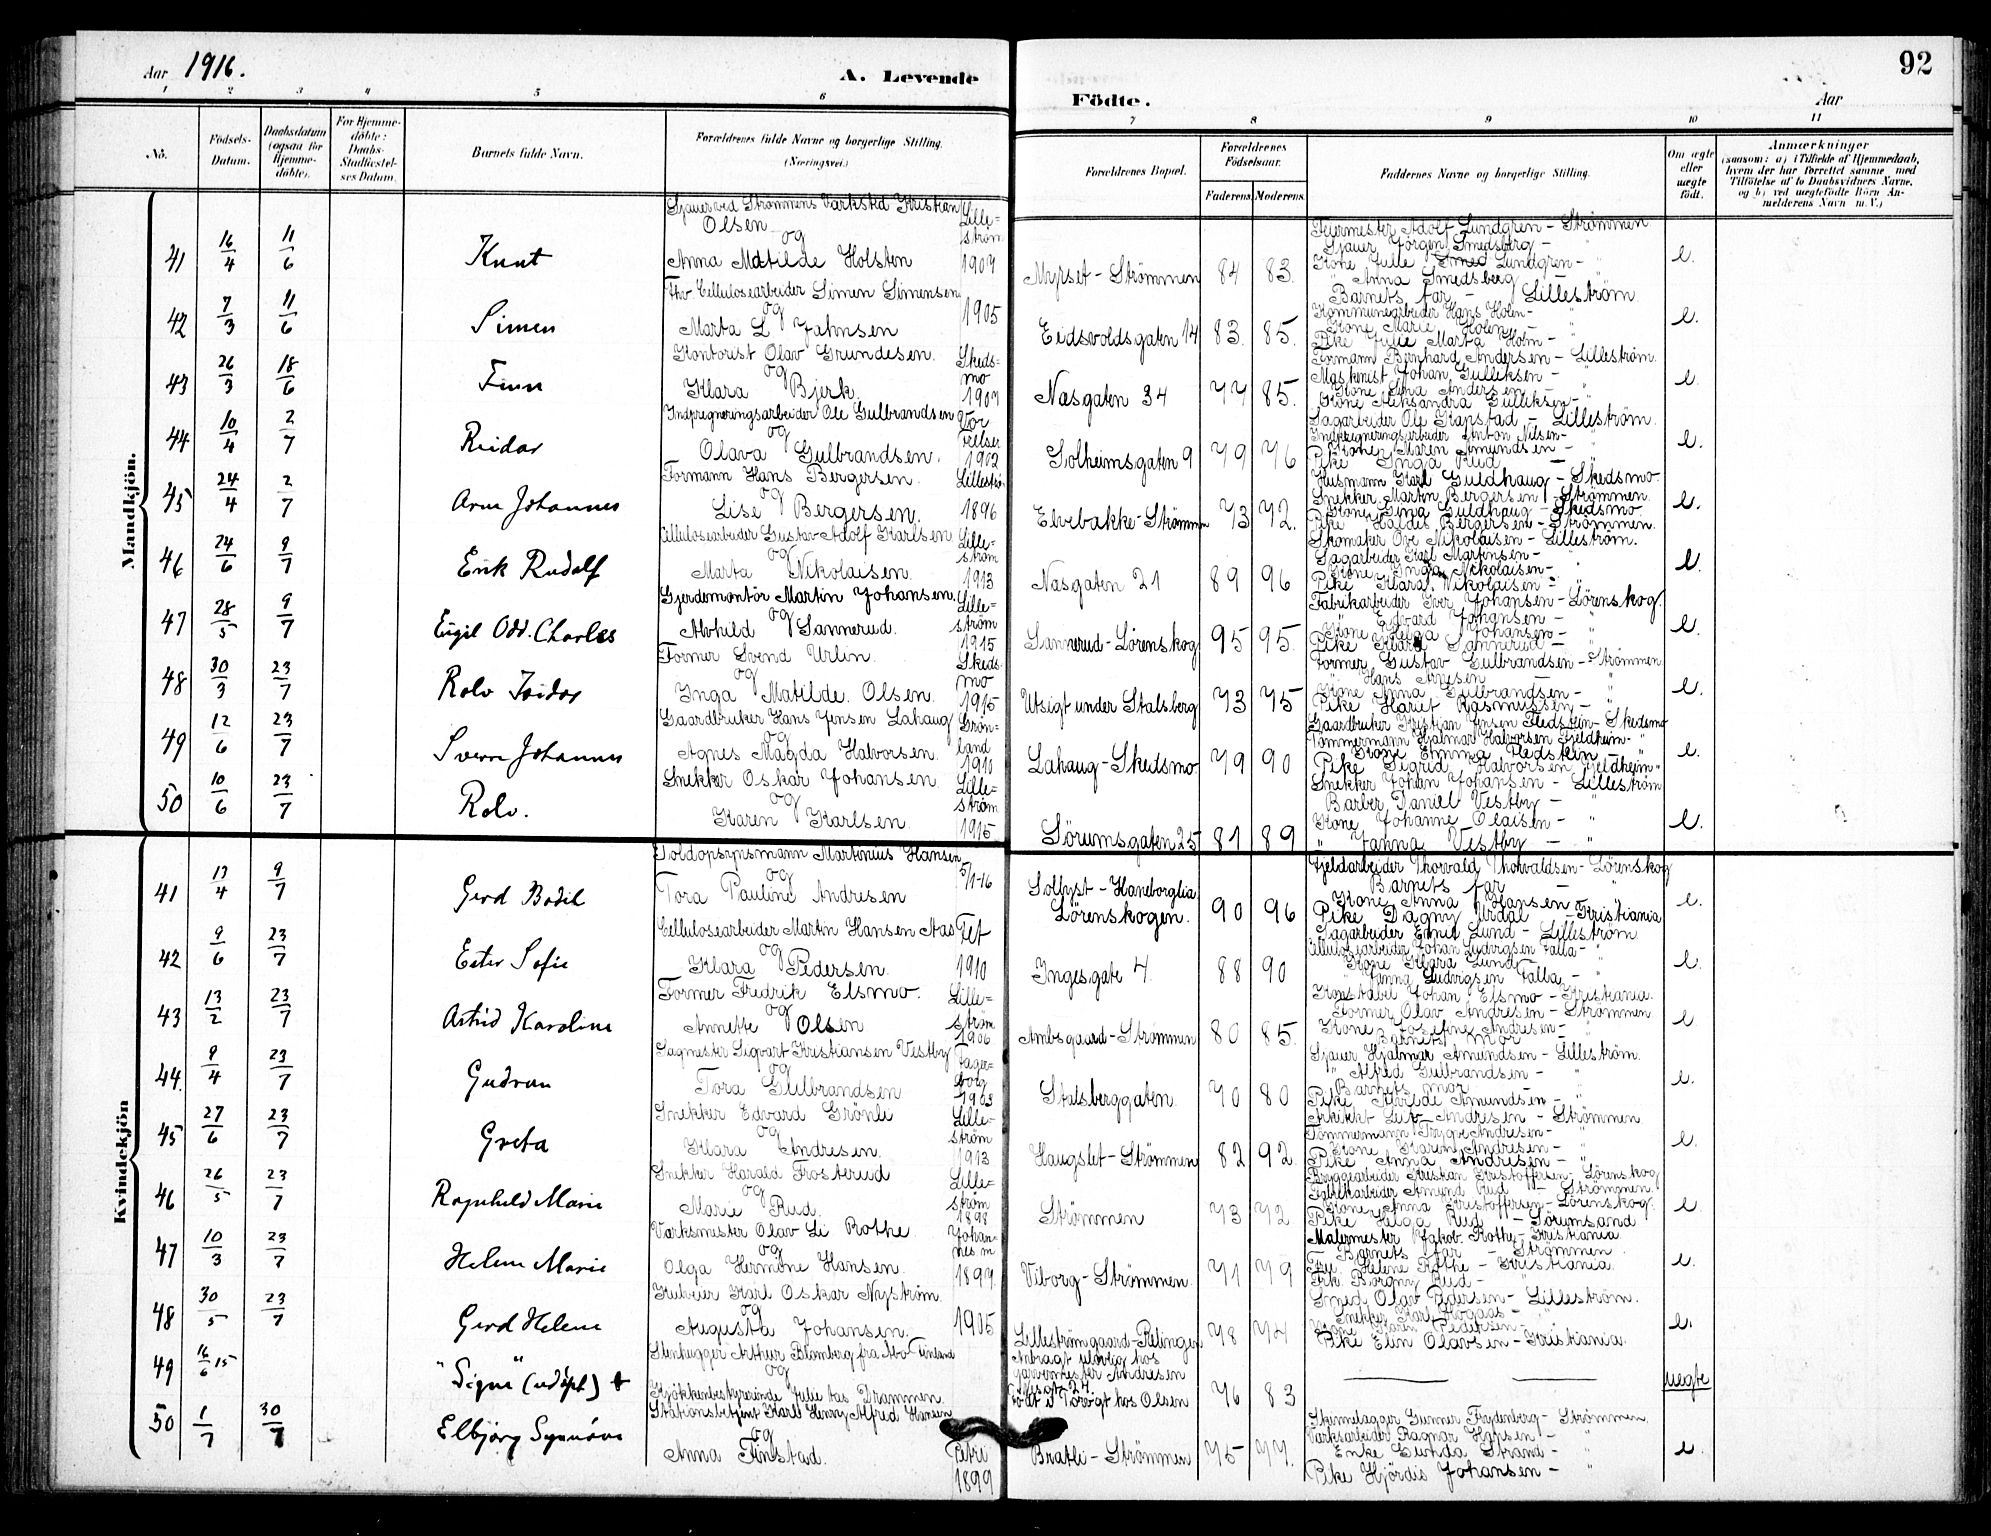 Aar 1916.
A. Levende
Födte.
Aar
92
1 2 3 4 5 6 7 8 9 10 11
No.
Födsels-Datum.
Daabsdatum (ogsaa for Hjemme-döbte).
For Hjemme-döbte: Daabs-Stadfæstel-ses Datum.
Barnets fulde Navn.
Forældrenes fulde Navne og borgerlige Stilling. (Næringsvei.)
Forældrenes Bopæl.
Forældrenes Födselsaar.
Faderens Moderens
Faddernes Navne og borgerlige Stilling.
Om ægte eller uægte födt.
Anmærkninger
(saasom: a) i Tilfælde af Hjemmedaab, hvem der har forrettet samme med Tilföielse af to Daabsvidners Navne, og b) ved uægtefödte Börn An-melderens Navn m. V.)
Mandkjön.
41 16/4 11/6 Knut
Sjauer ved Strømmens Værksted Kristian Olsen og Anna Matilde Holsten Lilleström 1907
Myrset - Strømmen 84 83.
Feiermester Adolf Lundgren - Strømmen
Sjauer Jörgen Smedsberg - "
Kone Julie Lundgren - "
" Anna Smedsberg - "
e.
42 7/3 11/6 Simen
Cellulosearbeider Simen Simensen og Marta L Jahnsen 1905
Eidsvoldsgaten 14 83. 85.
Barnets far - Lilleström
Kommunearbeider Hans Holen - "
Kone Marie Holen - "
Pike Julie Marta Holm - "
e.
43 26/3 18/6 Finn
Kontorist Olav Grundesen og Klara Bjerk Skedsmo 1907
Næsgaten 34 77 85.
Formann Bernhard Andersen - Lilleström.
Maskinist Johan Gulliksen - "
Kone Andersen - "
Kone Aleksandra Gulliksen - "
e.
44 10/4 2/7 Reidar
Impregneringsarbeider Ole Gulbrandsen og Olava Gulbrandsen. Vor Frelser 1902
Solheimsgaten 9 79 76
Sagarbeider Ole Kapstad - Lilleström.
Impregneringsarbeider Anton Nilsen - "
Kone Maren Amundsen - "
Pike Inga Rud - "
e.
45 24/4 2/7 Arne Johannes
Formann Hans Bergersen og Lise Bergersen. Lilleström 1896
Elvebakke - Strømmen 73 72.
Husmann Karl Guldhaug - Skedsmo.
Snekker Martin Bergersen - Strømmen.
Kone Guldhaug - Skedsmo
Pike Haldis Bergersen - Strømmen.
e.
46 24/6 9/7 Erik Rudolf
Cellulosearbeider Gustav Adolf Karlsen og Marta Nikolaisen. Lilleström 1913
Næsgaten 21 89 96
Skomaker Ove Nikolaisen - Lilleström.
Sagarbeider Karl Martinsen - "
Kone Inga Nikolaisen - "
Pike Klara Nikolaisen - "
e.
47 28/5 9/7 Eugil Odd. Charles
Gjerdemontör Martin Johansen. og Alvhild Sannerud. Lilleström 1915
Sannerud - Lörenskog 95 95.
Fabrikarbeider Iver Johansen - Lörenskog.
" Edvard Johansen - "
Kone Helga Johansen - "
Pike Sannerud - "
e.
48 30/3 23/7 Rolv Reidar
Former Svend Urlin og Inga Matilde Olsen. Skedsmo 1915
Utsigt under Stalsberg 73 75
Former Gustav Gulbrandsen - Strømmen
" Hans Arnesen - "
Kone Anna Gulbrandsen - "
Pike Hariet Rasmussen - "
e.
49 12/6 23/7 Sverre Johannes
Gaardbruker Hans Jensen Lahaug og Agnes Magda Halvorsen. Grönland 1910
Lahaug - Skedsmo. 79 90
Gaardbruker Kristian Jensen Fledstein - Skedsmo
Tömmermann Hjalmar Halvorsen Fjeldheim - "
Kone Emma Fledstein - "
Pike Sigrid Halvorsen Fjeldheim "
e.
50 10/6 23/7 Rolv.
Snekker Oskar Johansen. og Karen Karlsen. Lilleström 1915
Sörumsgaten 25 81 89
Snekker Johan Johansen - Lilleström
Barber Daniel Vestby - "
Kone Johanne Olaisen - "
" Janna Vestby - "
e.
Kvindekjön
41 17/4 9/7 Gerd Bodil
Toldopsynsmann Martinius Hansen og Tora Pauline Andresen 5/1-16
Sollyst - Haneborglia Lörenskogen. 90 96
Fjeldarbeider Thorvald Thorvaldsen - Lörenskog
Barnets far - "
Kone Anna Hansen - "
Pike Dagny Urdal - Kristiania
e.
42 9/6 23/7 Ester Sofie
Cellulosearbeider Martin Hansen Aas og Klara Pedersen. Fet 1910
Ingesgate 4. 88 90
Sagarbeider Emil Lund - Lilleström
Cellulosearbeider Johan Ludvigsen Falla - "
Kone Klara Lund - "
" Janna Ludvigsen Falla - "
e.
43 13/2 23/7 Astrid Karoline
Former Fredrik Elsmo. og Annette Olsen Lilleström 1906
Ambsgaard - Strømmen 80 85.
Konstabel Johan Elsmo - Kristiania.
Former Olav Andresen - Strømmen
Kone Josefine Andresen - "
Barnets mor - "
e
44. 9/4 23/7 Gudrun
Sagmester Sigvart Kristiansen Vestby og Tora Gulbrandsen Fagerborg 1903
Stalsberggaten. 70 80
Sjauer Hjalmar Amundsen - Lilleström.
" Alfred Gulbrandsen - "
Barnets mor - "
Pike Amundsen - "
e.
45 27/6 23/7 Greta
Snekker Edvard Grönli og Klara Andresen. Lilleström 1913
Haugslet - Strømmen 82 92.
Arkitekt Leif Andresen - Strømmen
Tömmermann Trygve Andresen - "
Kone Karen Andresen - "
Pike Anna Andresen - "
e.
46 26/5 23/7 Ragnhild Marie
Snekker Harald Frosterud og Marie Rud. Lilleström 1898
Strömmen 73 72
Bryggearbeider Kristian Kristoffersen - Lörenskog
Fabrikarbeider Amund Rud - Strømmen.
Kone Anna Kristoffersen - Lörenskog.
Pike Helga Rud - Sörumsand
e
47 10/3 23/7 Helene Marie
Værksmester Olav Li Rothe og Olga Hermine Hansen. Johannes m 1899.
Viborg - Strömmen. 71 79
Malermester Jakob Rothe - Kristiania
Barnets far - Strømmen.
Fru Helene Rothe - Kristiania.
Frk. Borgny Rud - "
e.
48 30/5 23/7 Gerd Helene
Karl Oskar Nyström. og Augusta Johansen. 1905
Lilleströmgaard - Rælingen 78 74
Smed Olav Pedersen - Lilleström.
Snekker Karl Hogaas - "
Kone Karen Pedersen - "
Pike Elin Olavsen - Kristiania.
e.
49 16/6 15 "Signe" (udöpt) †
Stenhugger Arthur Blomberg fra Åbo Finland og Kjökkenbestyrerinde Julie Aas Drammen
Anbragt ulovlig hos garvermester Andresen
Födt i Torvgt hos Olsen 76 83
uegte
50 1/7 30/7 Elbjörg Synnöve
Stationsbetjent Karl Henry Alfred Hansen og Anna Finstad. Petri 1899
Bratli - Strömmen 75 77.
Skinnelægger Gunner Frydenberg - Strømmen.
Værksarbeider Ragnar Hansen - "
Enke Gunda Strand - "
Pike Hjördis Johansen - "
e